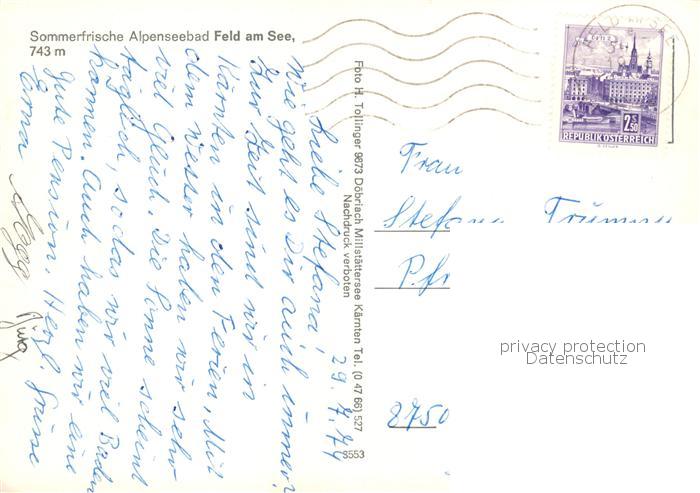 Sommerfrische Alpenseebad Feld am See,
743 m
29. 7. 74
Liebe Stefana,
Wie geht es Dir auch immer?
Zur Zeit sind wir in
Kärnten in den Ferien. Mit
dem Wetter haben wir sehr
viel Glück. Die Sonne scheint
täglich, so das wir viel Baden
können. Auch haben wir eine
gute Pension. Herzl. Grüsse
Erna
Foto H. Tollinger 9873 Döbriach Millstättersee Kärnten Tel. (0 47 66) 527
Nachdruck verboten
S553
2 S 50
REPUBLIK ÖSTERREICH
Frau
Pfr
8750
privacy protection
Datenschutz